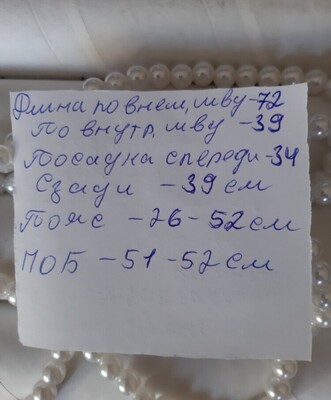 Длина по внеш, шву-72
По внутр, шву -39
Посадка спереди-34
Сзади - 39 см
Пояс - 26 - 52 см
ПОБ - 51 - 52 см